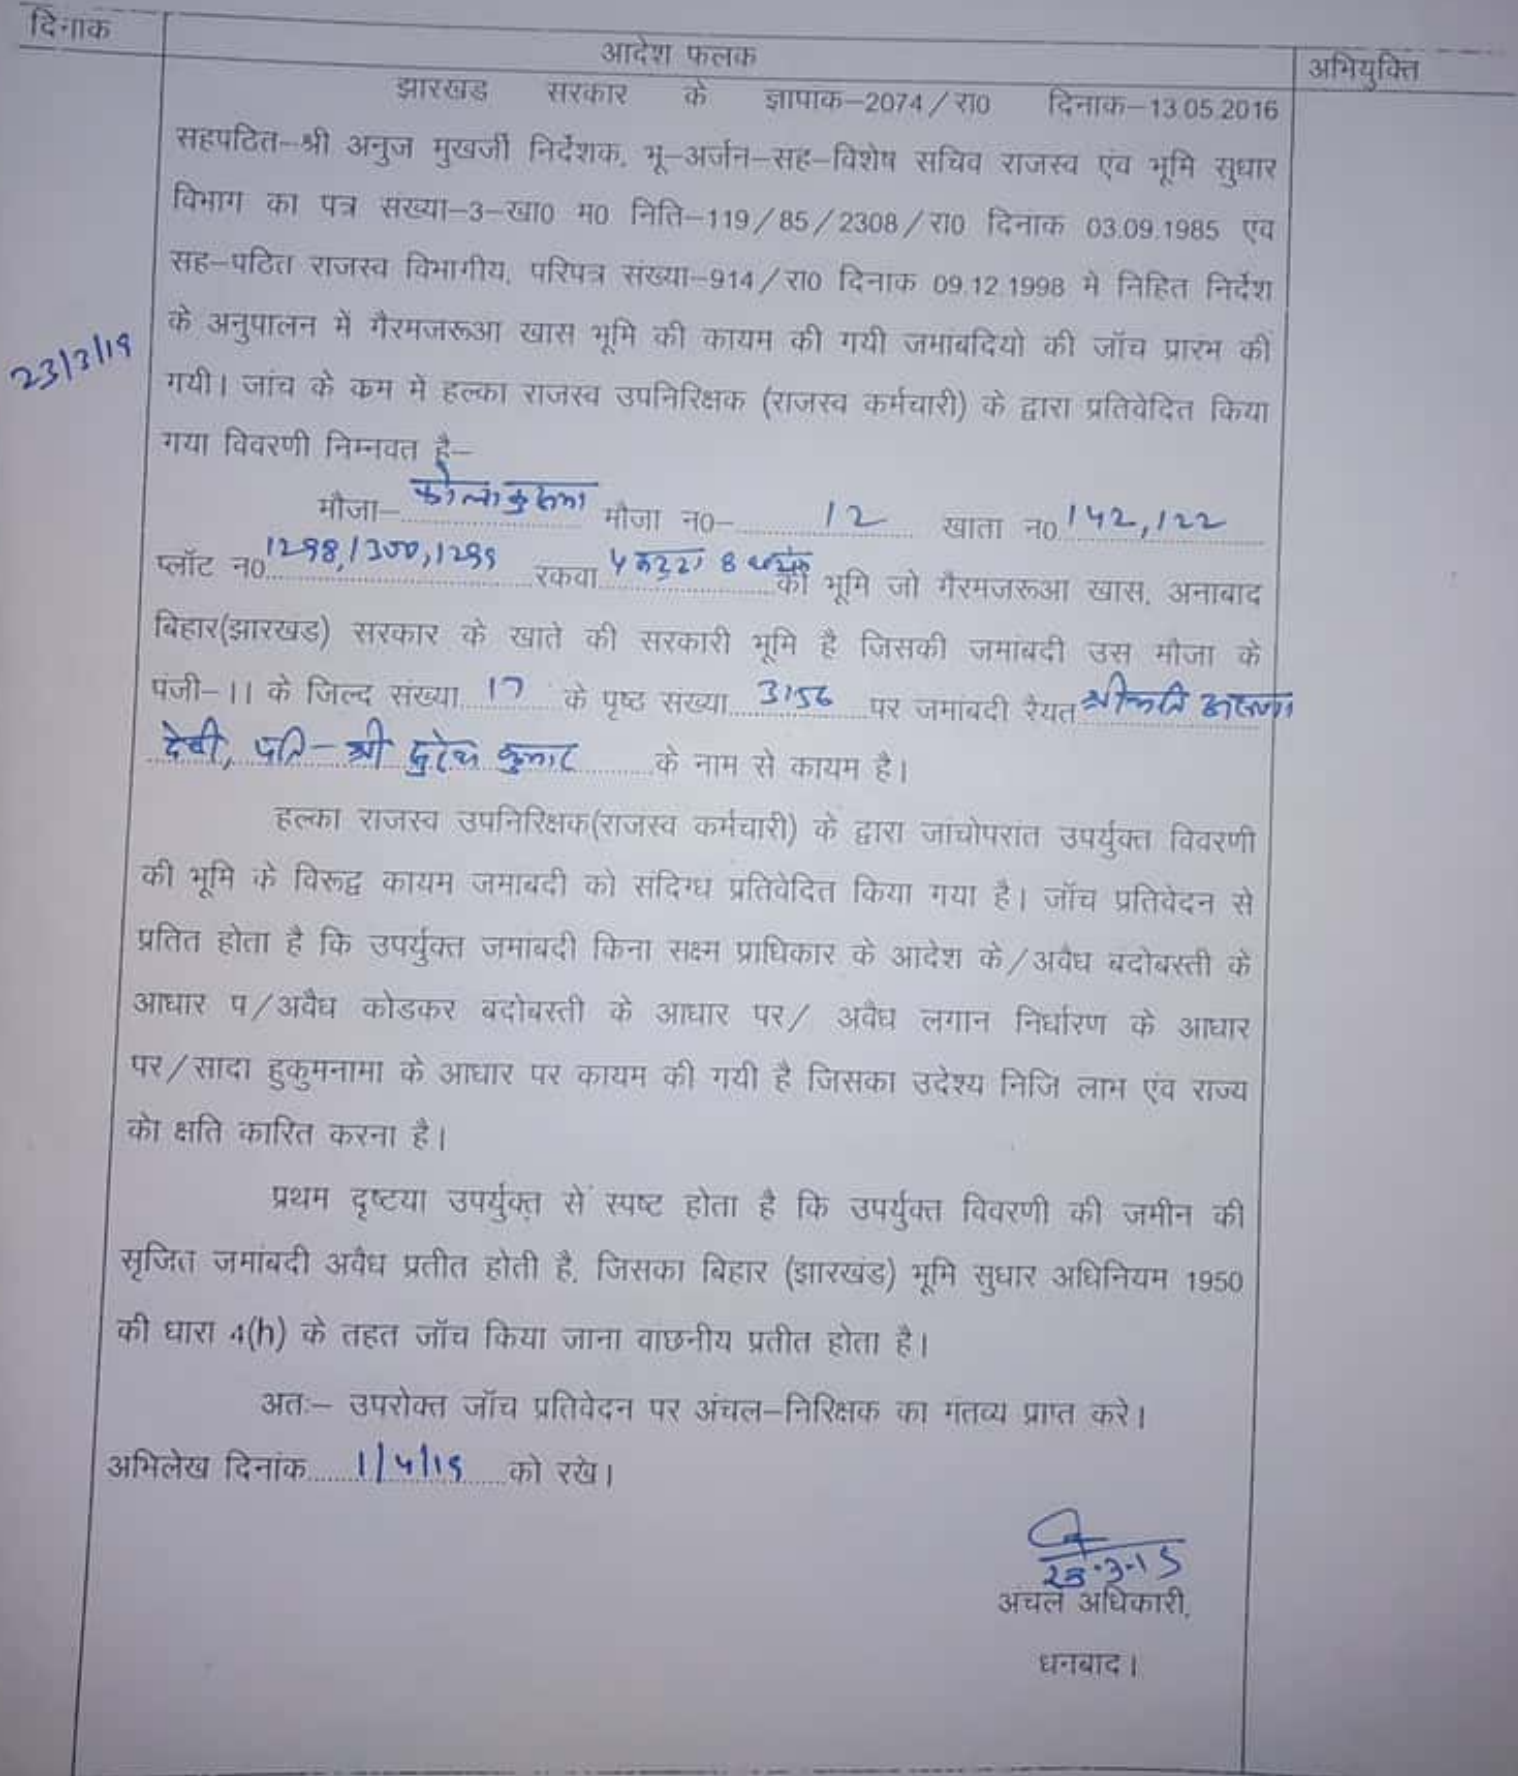 दिनाक
आदेश फलक
अभियुक्ति
झारखड सरकार के ज्ञापाक-2074/रा0 दिनाक-13.05.2016
सहपठित-श्री अनुज मुखर्जी निर्देशक, भू-अर्जन-सह-विशेष सचिव राजस्व एंव भूमि सुधार
विभाग का पत्र संख्या-3-खा0 म0 निति-119/85/2308/रा0 दिनांक 03.09.1985 एंव
सह-पठित राजस्व विभागीय, परिपत्र संख्या-914/रा0 दिनाक 09.12.1998 मे निहित निर्देश
के अनुपालन में गैरमजरूआ खास भूमि की कायम की गयी जमाबंदियो की जॉच प्रारंभ की
23/3/19
गयी। जांच के कम में हल्का राजस्व उपनिरिक्षक (राजस्व कर्मचारी) के द्वारा प्रतिवेदित किया
गया विवरणी निम्नवत है-
मौजा- कोलाकुसमा मौजा न0- 12 खाता न0 142,122
प्लॉट न0 1298,1300,1299 रकवा 4 कट्टा 8 की भूमि जो गैरमजरूआ खास, अनाबाद
बिहार(झारखड) सरकार के खाते की सरकारी भूमि है जिसकी जमांबदी उस मौजा के
पंजी-।। के जिल्द संख्या 17 के पृष्ट संख्या 3156 पर जमांबदी रैयत श्रीमति
देवी, पति-श्री कुमार के नाम से कायम है।
हल्का राजस्व उपनिरिक्षक(राजस्व कर्मचारी) के द्वारा जांचोपरांत उपर्युक्त विवरणी
की भूमि के विरूद्व कायम जमाबदी को संदिग्ध प्रतिवेदित किया गया है। जॉच प्रतिवेदन से
प्रतित होता है कि उपर्युक्त जमांबदी किना सक्ष्म प्राधिकार के आदेश के/अवैध बदोबस्ती के
आधार प/अवैध कोडकर बंदोबस्ती के आधार पर/ अवैध लगान निर्धारण के आधार
पर/सादा हुकुमनामा के आधार पर कायम की गयी है जिसका उदेश्य निजि लाभ एंव राज्य
को क्षति कारित करना है।
प्रथम दृष्टया उपर्युक्त से स्पष्ट होता है कि उपर्युक्त विवरणी की जमीन की
सृजित जमांबदी अवैध प्रतीत होती है, जिसका बिहार (झारखंड) भूमि सुधार अधिनियम 1950
की धारा 4(h) के तहत जॉच किया जाना वाछनीय प्रतीत होता है।
अतः- उपरोक्त जॉच प्रतिवेदन पर अंचल-निरिक्षक का मंतव्य प्राप्त करे।
अभिलेख दिनांक 1/4/19 को रखे।
23-3-19
अंचल अधिकारी,
धनबाद।